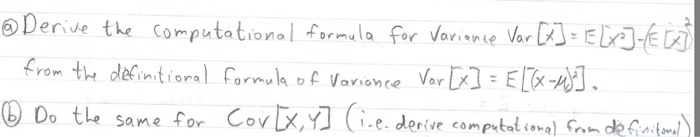 ⓐ Derive the computational formula for Variance Var[X] = E[X²]-(E[X])²
from the definitional formula of Variance Var[X] = E[(X-μ)²].
ⓑ Do the same for Cov[X,Y] (i.e. derive computational from definitonal)